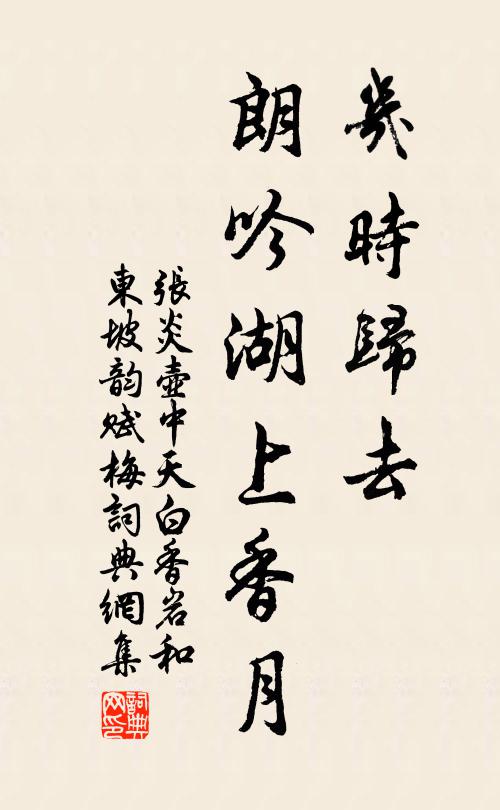 幾時歸去
朗吟湖上香月
張炎壺中天白香岩和
東坡韵賦梅詞典網集
詞典
网印